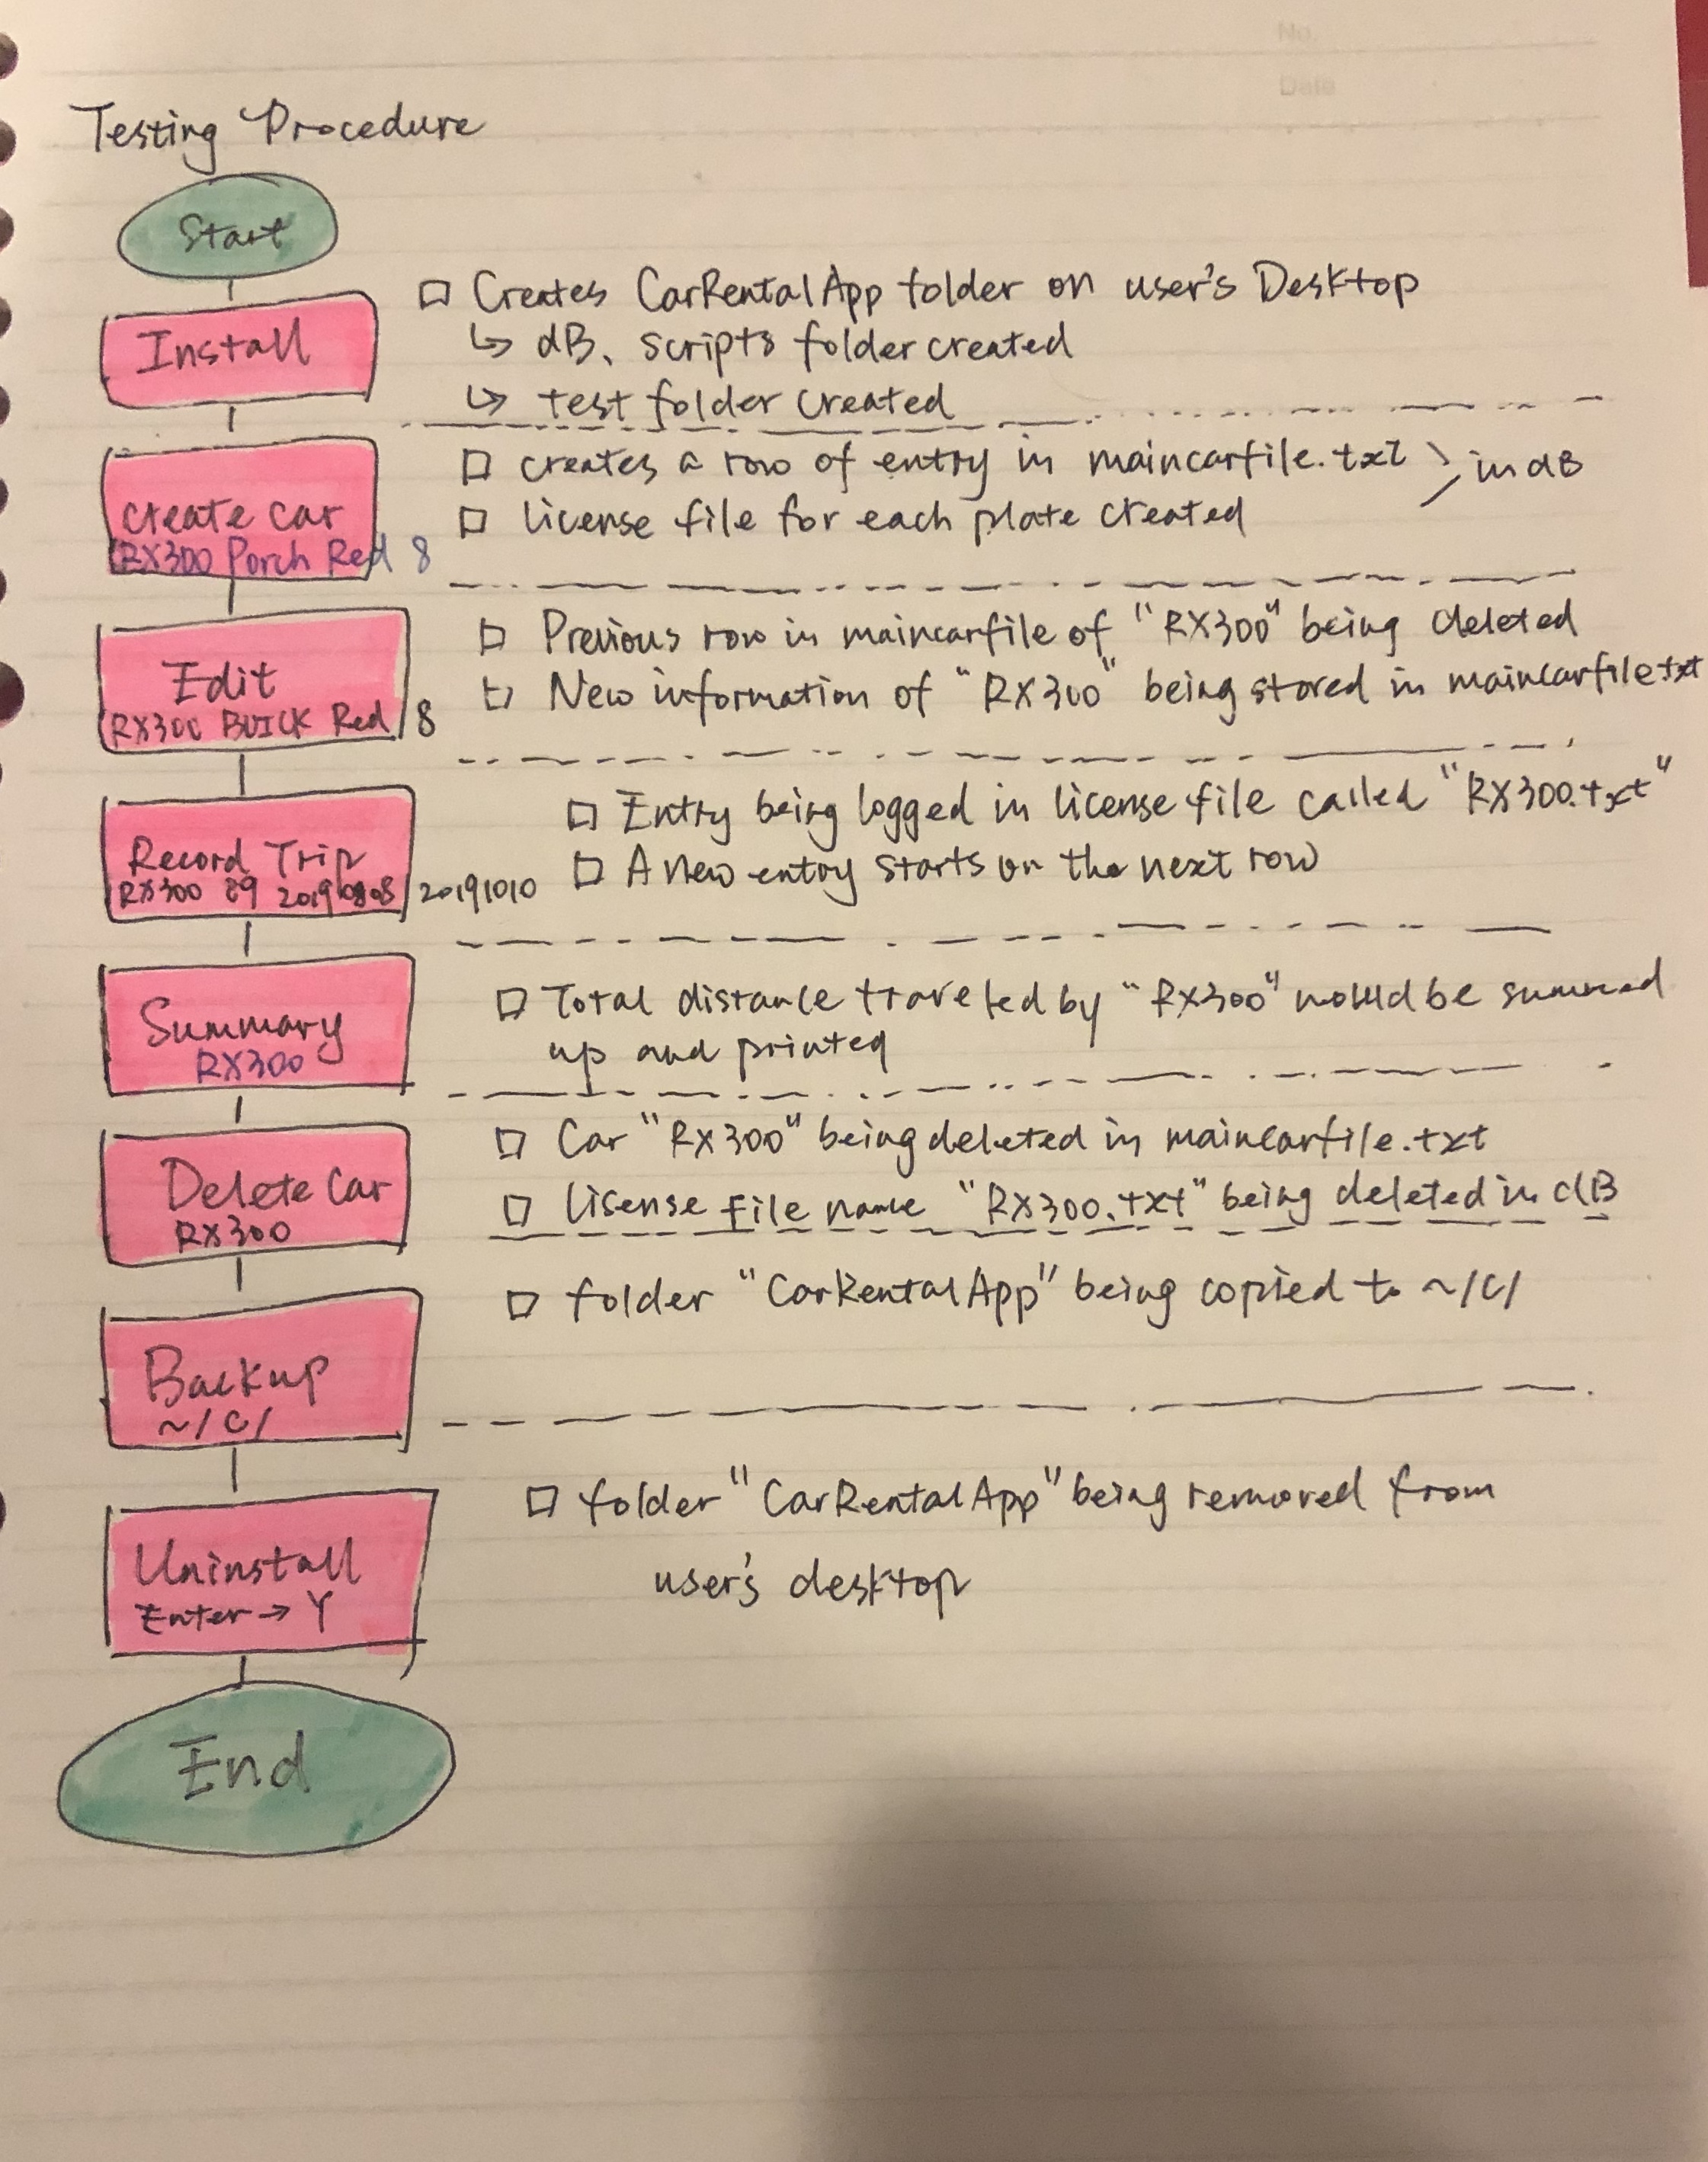 No.
Date
Testing Procedure
Start
Install
□ Creates CarRentalApp folder on user's Desktop
↳ dB, scripts folder created
↳ test folder created
Create car
RX300 Porch Red 8
□ creates a row of entry in maincarfile.txt
□ license file for each plate created
} in dB
Edit
RX300 BUICK Red 8
□ Previous row in maincarfile of "RX300" being deleted
□ New information of "RX300" being stored in maincarfile.txt
Record Trip
RX300 89 20190808 20191010
□ Entry being logged in license file called "RX300.txt"
□ A new entry starts on the next row
Summary
RX300
□ Total distance traveled by "RX300" would be summed
up and printed
Delete Car
RX300
□ Car "RX300" being deleted in maincarfile.txt
□ lisense file name "RX300.txt" being deleted in dB
Backup
~/C/
□ folder "CarRentalApp" being copied to ~/C/
Uninstall
Enter → Y
□ folder "CarRentalApp" being removed from
user's desktop
End